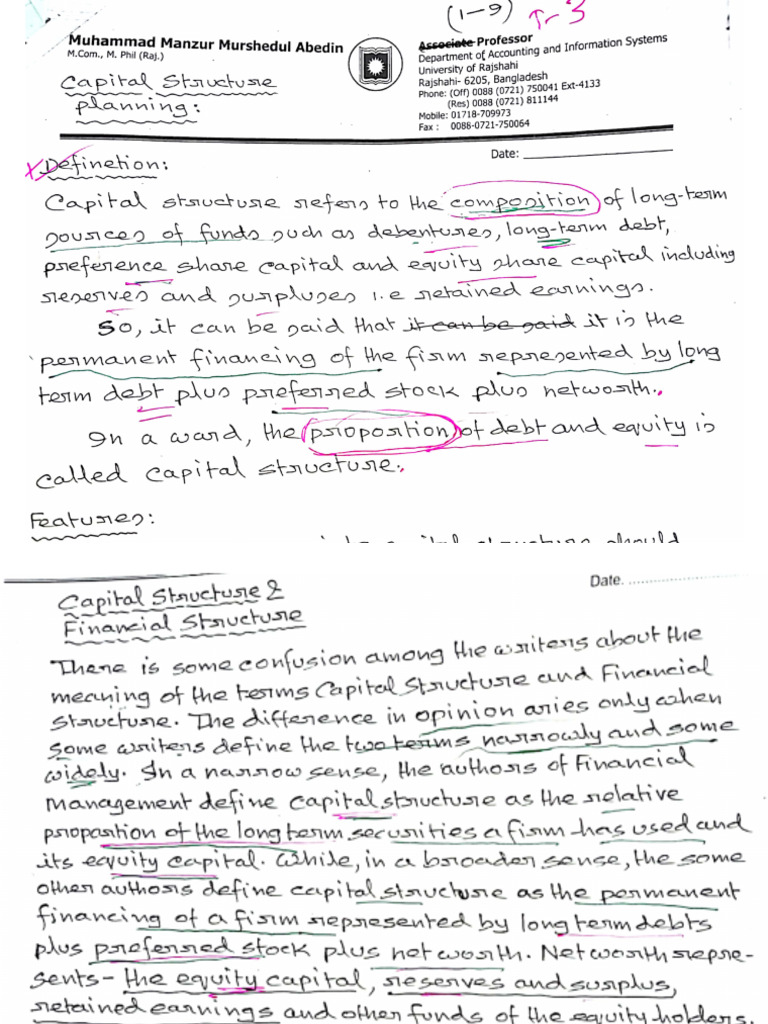 (1-9) T-3
Muhammad Manzur Murshedul Abedin
M.Com., M. Phil (Raj.)
Capital Structure
planning:
Associate Professor
Department of Accounting and Information Systems
University of Rajshahi
Rajshahi- 6205, Bangladesh
Phone: (Off) 0088 (0721) 750041 Ext-4133
(Res) 0088 (0721) 811144
Mobile: 01718-709973
Fax : 0088-0721-750064
Date:
Definetion:
Capital structure refers to the composition of long-term
sources of funds such as debentures, long-term debt,
preference share capital and equity share capital including
reserves and surpluses i.e retained earnings.
So, it can be said that it can be said it is the
permanent financing of the firm represented by long
term debt plus preferred stock plus networth.
In a ward, the proportion of debt and equity is
called capital structure.
Features:
capital structure should
Date.
Capital Structure &
Financial Structure
There is some confusion among the writers about the
meaning of the terms Capital Structure and Financial
Structure. The difference in opinion aries only when
some writers define the two terms narrowly and some
widely. In a narrow sense, the authors of Financial
Management define capital structure as the relative
propartion of the long term securities a firm has used and
its equity capital. While, in a broader sense, the some
other authors define capital structure as the permanent
financing of a firm represented by long term debts
plus preferred stock plus net worth. Net worth repre-
sents- the equity capital, reserves and surplus,
retained earnings and other funds of the equity holders.